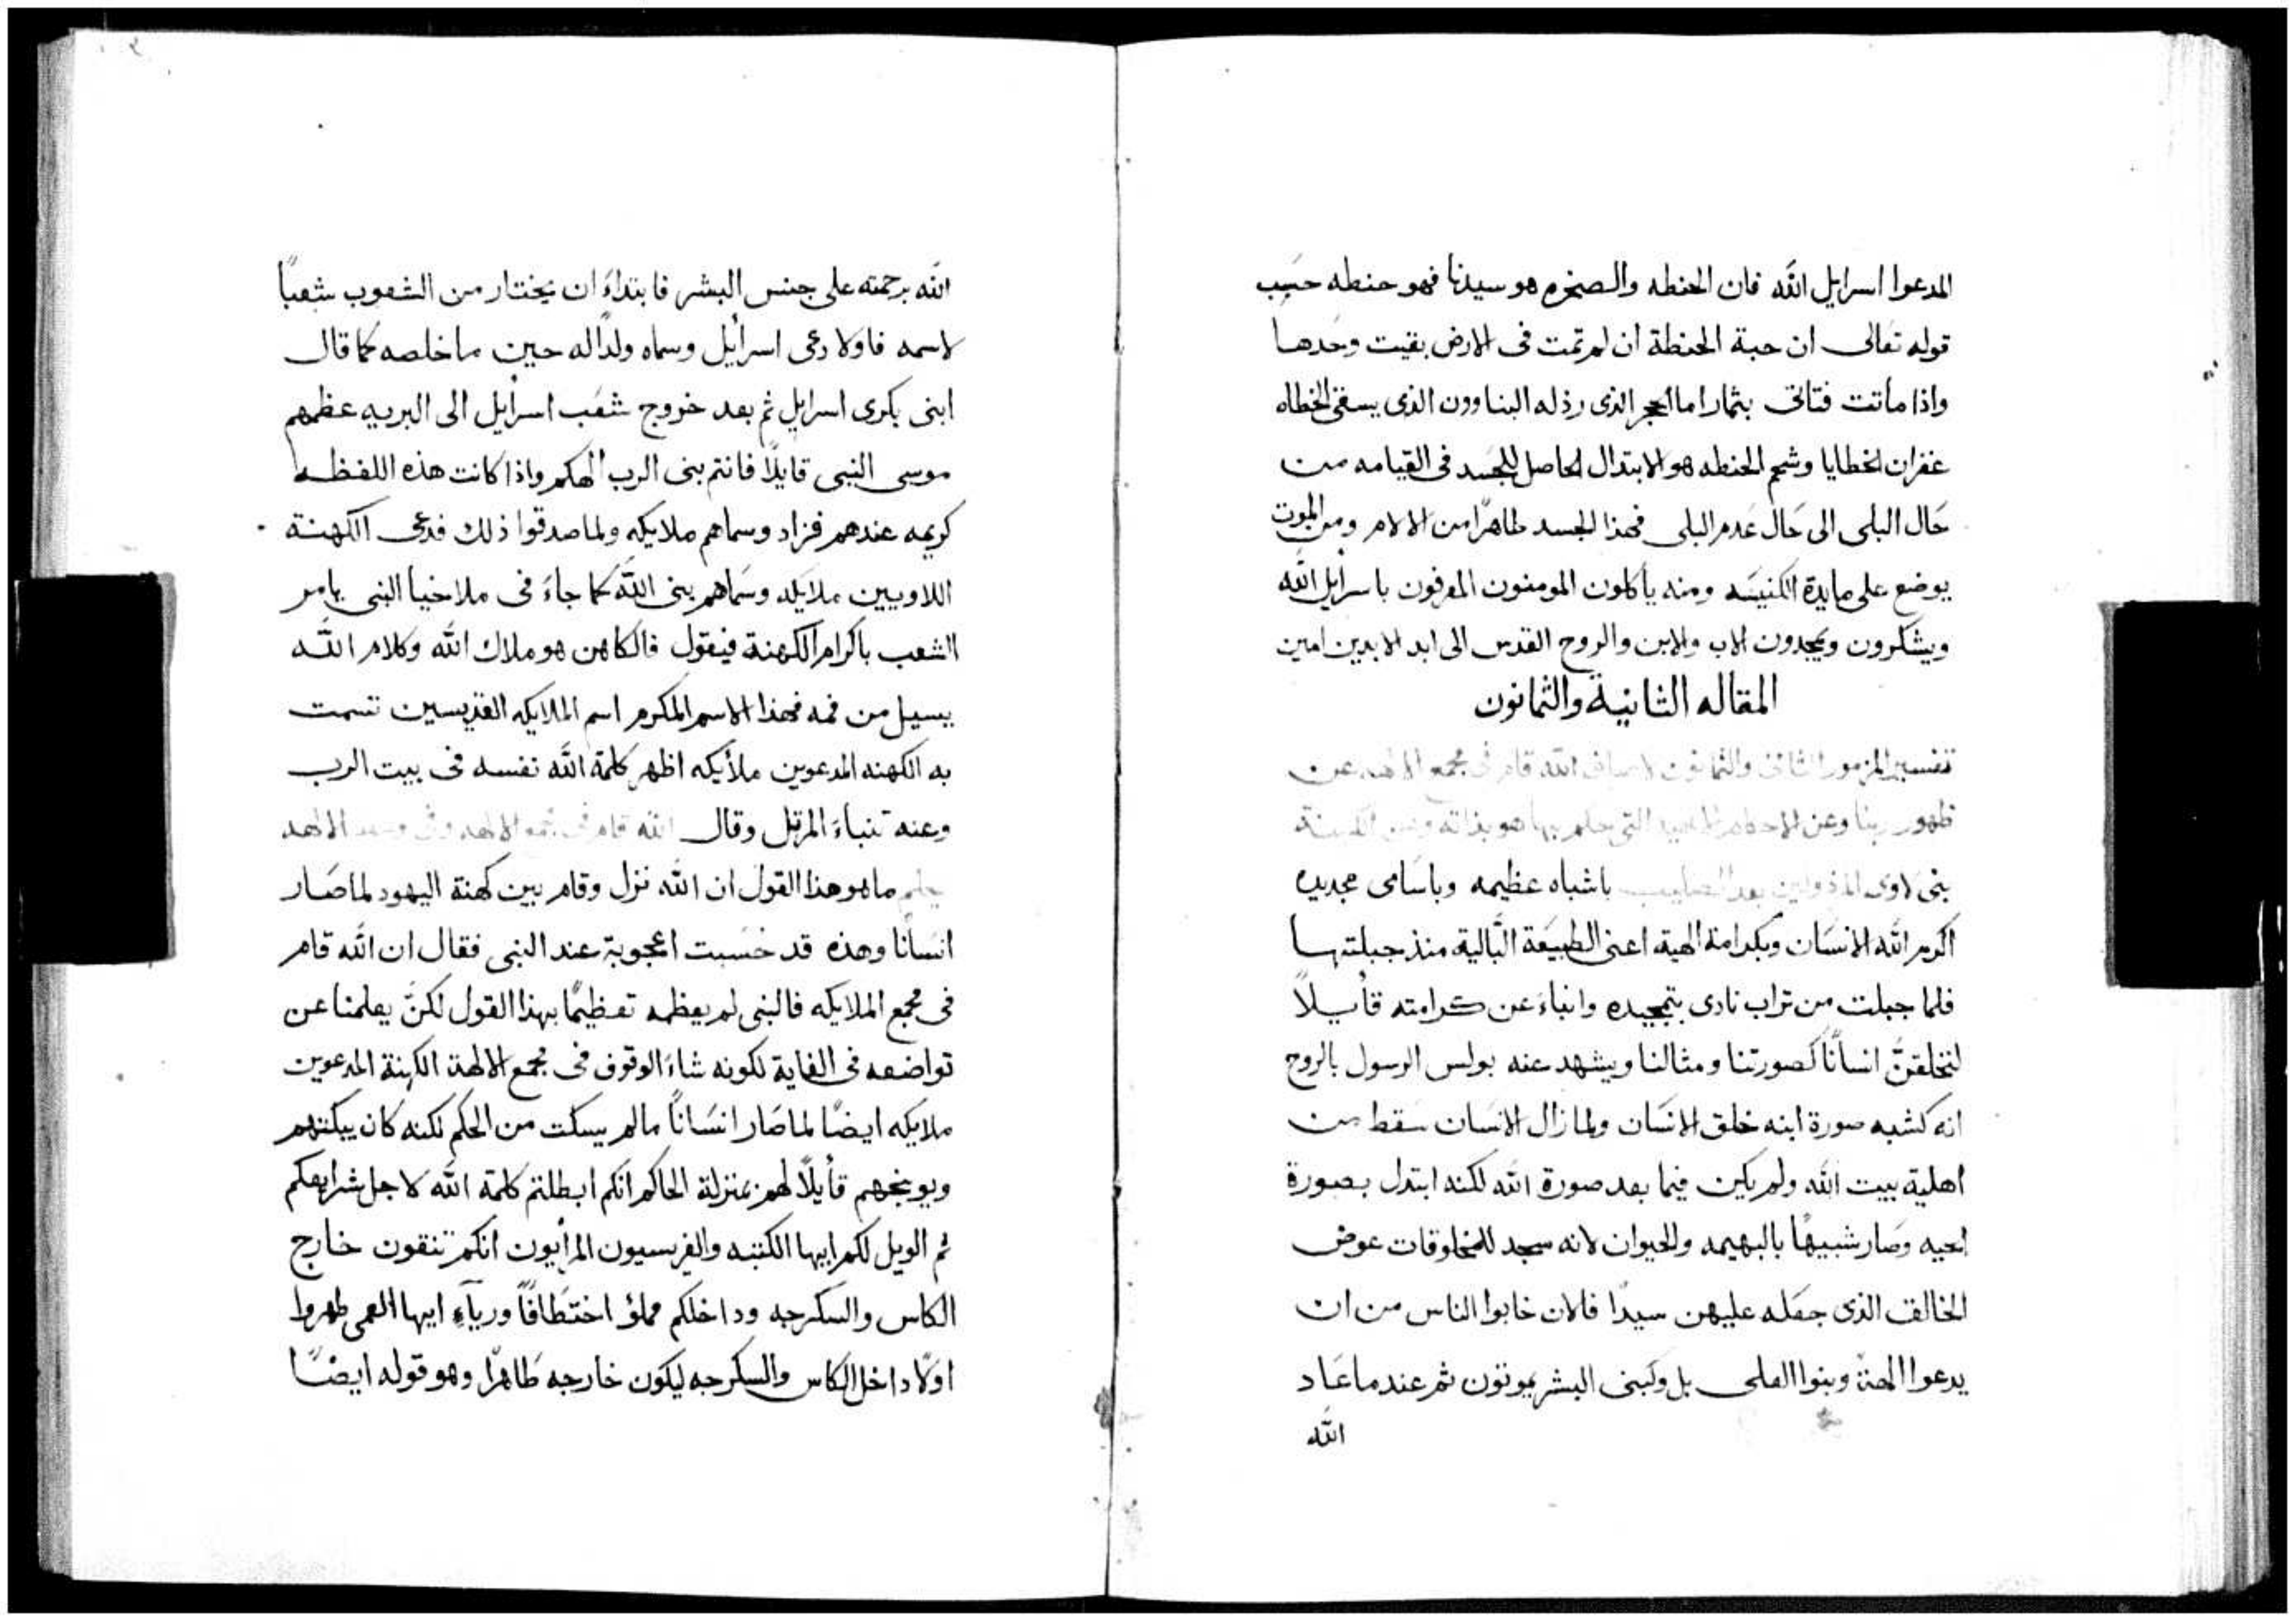 المدعوا اسرايل الله فان الحنطه والصخره هو سيدنا فهو حنطه حسَب
قوله تعَالى ان حبة الحنطة ان لم تمت فى الارض بقيت وحَدها
واذا ماتت فتاتى بثمار اما الحجر الذى رذله البناوون الذى يسقى الخطاه
غفران الخطايا وشحم الحنطه هو الابتدال الحاصل للجسَد فى القيامه من
حَال البلى الى حَال عَدم البلى فهذا الجسد طاهرًا من الالام ومن الموت
يوضع على مايدة الكنيسَه ومنه يأكلون المومنون المعرفون باسرايل الله
ويشكرون ويمجدون الاب والابن والروح القدس الى ابد الابدين امين
المقاله الثانية والثمانون
تفسير المزمور الثانى والثمانون لاساف الله قام فى مجمع الالهه عن
ظهور ربنا وعن الاحكام التى حكم بها هو بذاته وعن الكهنة
بنى لاوى المرذولين بعد الصليب باشباه عظيمه وباسَامى مجديده
اكرم الله الانسَان وبكرامة الهية اعنى الطبيعَة البَالية منذ جبلتها
فلما جبلت من تراب نادى بتمجيده وانباءَ عن كرامته قأيلاً
لنخلقنَّ انسانًا كصورتنا ومثالنا ويشهد عنه بولس الرسول بالروح
انه كشبه صورة ابنه خلق الانسَان ولما زال الانسَان سَقط من
اهلية بيت الله ولم يكن فيما بعد صورة الله لكنه ابتدل بصورة
الحيه وصَار شبيهًا بالبهيمه والحيوان لانه سجد للمخلوقات عوض
الخالق الذى جعَله عليهن سيدًا فالان خابوا الناس من ان
يدعوا الهة وبنوا العلى بل وكبنى البشر يموتون ثم عندما عَاد
الله
الله برحمته على جنس البشر فابتداءَ ان يختار من الشعوب شعبًا
لاسمه فاولا دعى اسرائيل وسماه ولدًا له حين ما خلصه كما قال
ابنى بكرى اسرايل ثم بعد خروج شعَب اسرايل الى البريه عظمهم
موسى النبى قايلاً فانتم بنى الرب الهكم واذا كانت هذه اللفظه
كريمه عندهم فزاد وسماهم ملايكه ولما صدقوا ذلك فدعى الكهنة
اللاويين ملايكه وسَماهم بنى الله كما جاءَ فى ملاخيا النبى يامر
الشعب باكرام الكهنة فيقول فالكاهن هو ملاك الله وكلام الله
يسيل من فمه فهذا الاسم المكرم اسم الملايكه القديسين تسمت
به الكهنه المدعوين ملأيكه اظهر كلمة الله نفسه فى بيت الرب
وعنه تنباءَ المرتل وقال الله قام فى مجمع الالهه وفى وسط الالهه
يحكم ما هو هذا القول ان الله نزل وقام بين كهنة اليهود لما صَار
انسَانا وهذه قد حُسَبت اعجوبة عند النبى فقال ان الله قام
فى مجمع الملايكه فالنبى لم يعظمه تعظيمًا بهذا القول لكنَّ يعلمنا عن
تواضعه فى الغاية لكونه شاءَ الوقوف فى مجمع الالهة الكهنة المدعوين
ملايكه ايضًا لما صَار انسَانًا ما لم يسكت من الحكم لكنه كان يبكتهم
ويوبخهم قأيلاً لهم بمنزلة الحاكم انكم ابطلتم كلمة الله لاجل شرايعكم
ثم الويل لكم ايها الكتبه والفريسيون المرأيون انكم تنقون خارج
الكاس والسكرجه وداخلكم مملؤ اختطافًا ورياءِ ايها العمى طهروا
اولاً داخل الكاس والسكرجه ليكون خارجه طَاهرًا وهو قوله ايضًا